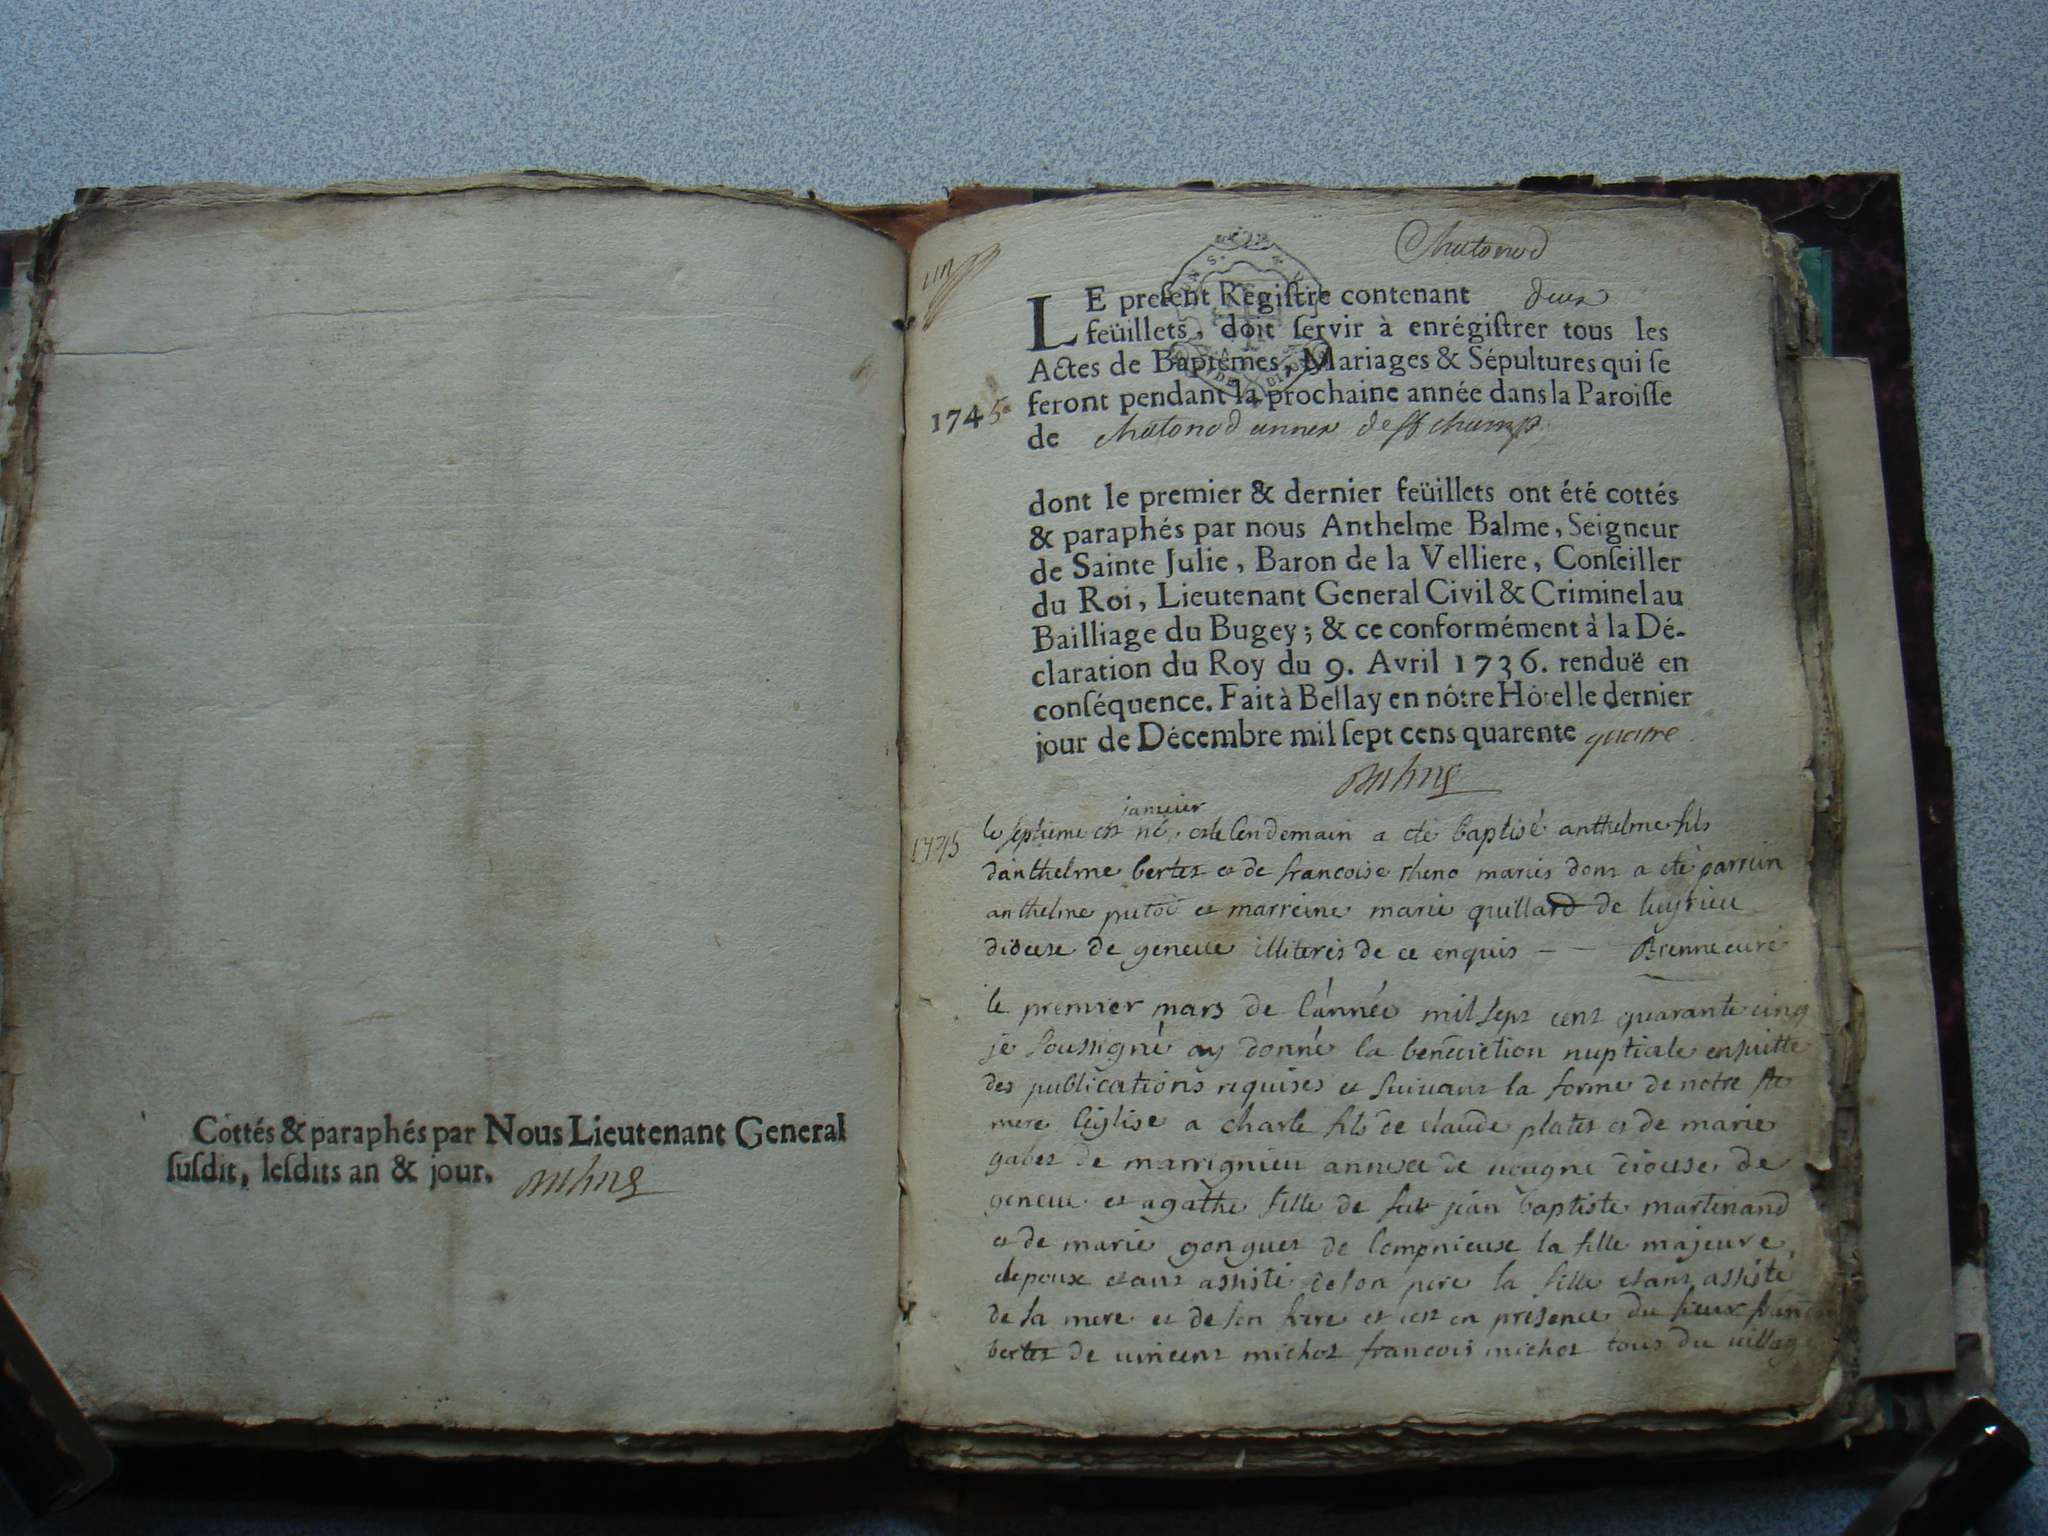 Cottés & paraphés par Nous Lieutenant General
ſuſdit, leſdits an & jour.
un
Chatonod
LE preſent Regiſtre contenant deux
feüillets, doit ſervir à enrégiſtrer tous les
Actes de Baptêmes, Mariages & Sépultures qui ſe
feront pendant la prochaine année dans la Paroiſſe
1745
de chatonod annex de st champ
dont le premier & dernier feüillets ont été cottés
& paraphés par nous Anthelme Balme, Seigneur
de Sainte Julie, Baron de la Velliere, Conſeiller
du Roi, Lieutenant General Civil & Criminel au
Bailliage du Bugey; & ce conformément à la Dé-
claration du Roy du 9. Avril 1736. renduë en
conſéquence. Fait à Bellay en nôtre Hôtel le dernier
jour de Décembre mil ſept cens quarente quatre
janvier
1745
le septieme est né, et le lendemain a eté baptisé anthelme fils
d'anthelme bertet et de francoise mariés dont a eté parrain
anthelme et marreine marie quillard de luyrieu
diocese de geneve illiterés de ce enquis — Brenne curé
le premier mars de l'année mil sept cent quarante cinq
je soussigné ay donné la benediction nuptiale ensuitte
des publications requises et suivant la forme de notre ste
mere l'eglise a charle fils de claude platet et de marie
gabet de marrignieu annexe de diocese de
geneve et agathe fille de feu jean baptiste martinand
et de marie gonguet de lompnieux la fille majeure,
l'epoux etant assisté de son pere la fille etant assistée
de sa mere et de son frere et c'est en presence du sieur
bertet de vincent michot francois michot tous du village